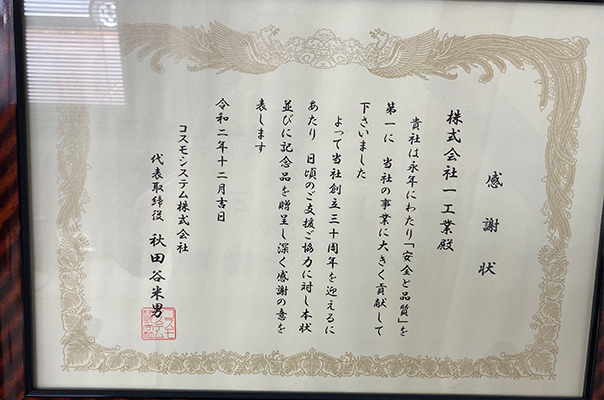 感謝状
株式会社一工業殿
貴社は永年にわたり「安全と品質」を
第一に 当社の事業に大きく貢献して
下さいました
よって当社創立三十周年を迎えるに
あたり 日頃のご支援ご協力に対し本状
並びに記念品を贈呈し深く感謝の意を
表します
令和二年十二月吉日
コスモシステム株式会社
代表取締役 秋田谷米男